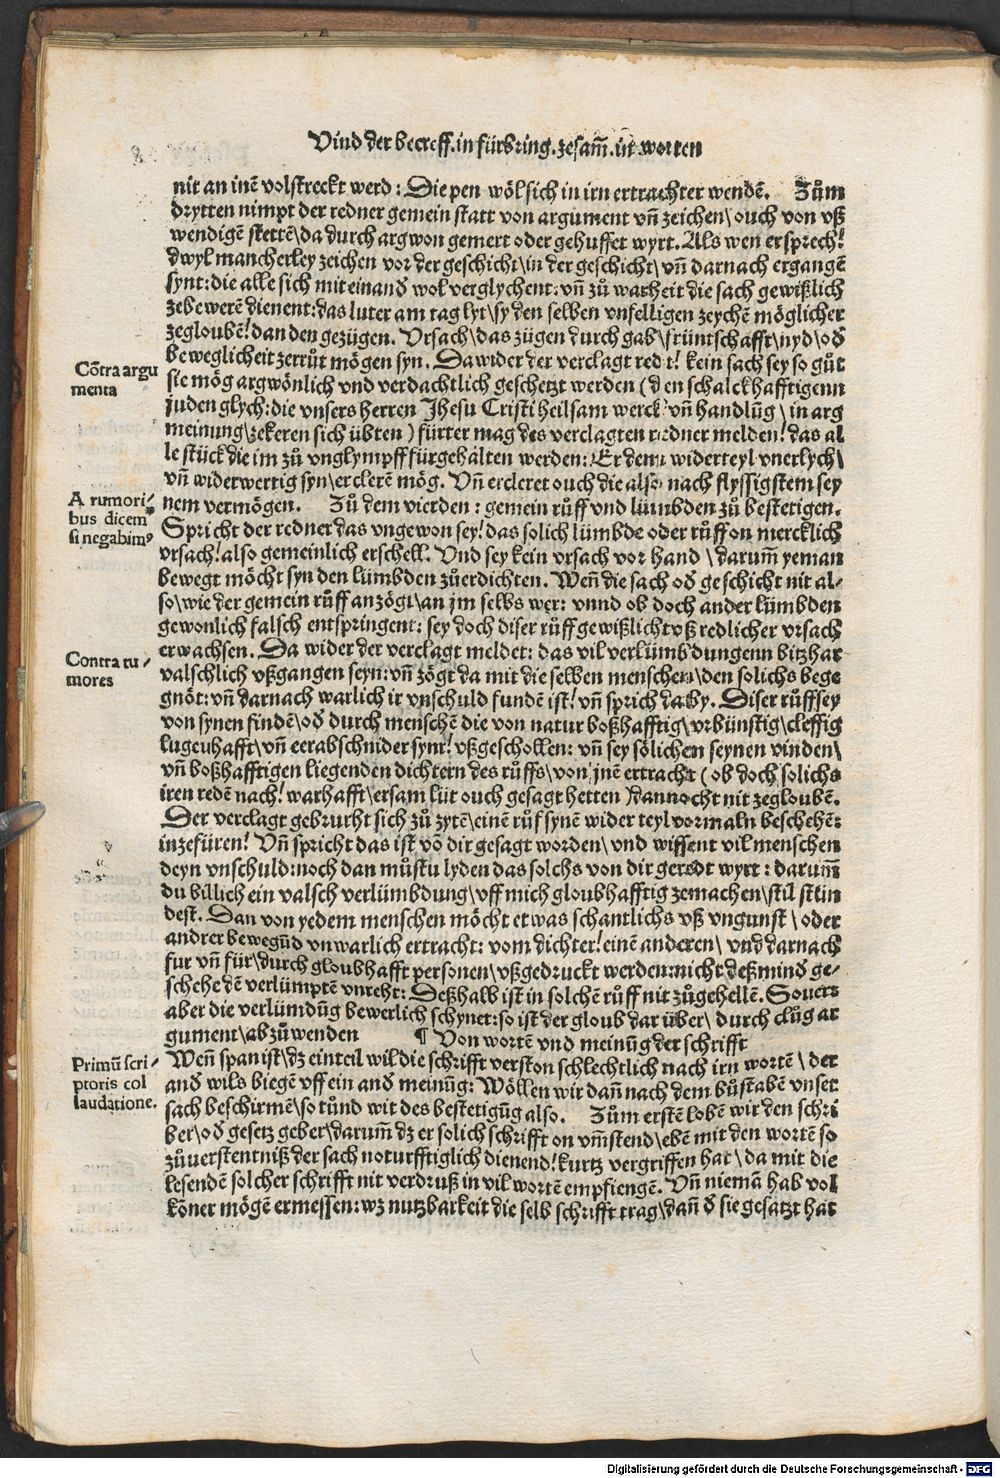 Vind der betreff. in fürbring. zesam̄. in worten
nit an inē volstreckt werd: Die pen wöl sich in irn ertrachter wendē. Zům
drytten nimpt der redner gemein statt von argument vn̄ zeichen\ ouch von vß
wendigē stettē\ da durch argwon gemert oder gehuffet wyrt. Als wen er sprech!
dwyl mancherley zeichen vor der geschicht\ in der geschicht\ vn̄ darnach ergangē
synt: die alle sich mit einand wol verglychent: vn̄ zů warheit die sach gewißlich
zebewerē dienent: das luter am tag lyt\ sy den selben vnselligen zeychē möglicher
zegloubē! dan den gezügen. Vrsach\ das zügen durch gab\ früntschafft\ nyd\ od
beweglicheit zerrůt mögen syn. Da wider der verclagt redt! kein sach sey so gůt
Cōtra argu
menta
sie mög argwönlich vnd verdachtlich geschetzt werden (den schalckhafftigenn
juden glych: die vnsers herren Jhesu Cristi heilsam werck vn̄ handlūg\ in arg
meinung\ zekeren sich übten) fürter mag des verclagten redner melden! das al
le stück die im zů vnglympff fürgehalten werden: Er dem widerteyl vnerlych\
vn̄ widerwertig syn\ erclerē mög. Vn̄ ercleret ouch die also nach flyssigstem sey
A rumori-
bus dicem9
si negabim9
nem vermögen. Zů dem vierden: gemein růff vnd lümbden zů bestetigen.
Spricht der redner das vngewon sey! das solich lümbde oder růff on mercklich
vrsach! also gemeinlich erschell. Vnd sey kein vrsach vor hand\ darum̄ yeman
bewegt möcht syn den lümbden zůerdichten. Wen̄ die sach od geschicht nit al-
so\ wie der gemein růff anzögt\ an jm selbs wer: vnnd ob doch ander lümbden
gewonlich falsch entspringent: sey doch diser růff gewißlicht vß redlicher vrsach
Contra ru-
mores
erwachsen. Da wider der verclagt meldet: das vil verlümbdungenn bitzhar
valschlich vßgangen seyn: vn̄ zögt da mit die selben menschen\ den solichs bege
gnöt: vn̄ darnach warlich ir vnschuld fundē ist! vn̄ sprich daby. Diser růff sey
von synen findē\ od durch menschē die von natur boßhafftig\ vrbünstig\ cleffig
lugenhafft\ vn̄ eerabschnider synt! vßgeschollen: vn̄ sey sölichen seynen vinden\
vn̄ boßhafftigen liegenden dichtern des růffs\ von jnē ertracht (ob doch solichs
iren redē nach! warhafft\ ersam lüt ouch gesagt hetten) dannocht nit zegloubē.
Der verclagt gebrucht sich zů zytē\ einē růf synē wider teyl vormaln beschehē:
inzefüren! Vn̄ spricht das ist vō dir gesagt worden\ vnd wissent vil menschen
deyn vnschuld: noch dan můstu lyden das solchs von dir geredt wyrt: darum̄
du billich ein valsch verlümbdung\ vff mich gloubhafftig zemachen\ stil stün
dest. Dan von yedem menschen möcht etwas schantlichs vß vngunst\ oder
andrer bewegūd vnwarlich ertracht: vom dichter! einē anderen\ vnd darnach
fur vn̄ für\ durch gloubhafft personen\ vßgedruckt werden: nicht deßmind ge-
schehe dē verlümptē vnreht: Deßhalb ist in solchē růff nit zůgehellē. So vers
aber die verlümdūg bewerlich schynet: so ist der gloub dar über\ durch clůg ar
gument\ abzůwenden ¶ Von wortē vnd meinūg der schrifft
Primū scri-
ptoris col
laudatione.
Wen̄ span ist\ dz ein teil wil die schrifft verston schlechtlich nach irn wortē\ der
and wils biegē vff ein and meinūg: Wöllen wir dan̄ nach dem bůstabē vnser
sach beschirmē\ so tůnd wir des bestetigūg also. Zům erstē lobē wir den schri
ber\ od gesetz geber\ darum̄ dz er solich schrifft on vm̄stend\ ebē mit den wortē so
zůuerstentniß der sach noturfftiglich dienend! kurtz vergriffen hat\ da mit die
lesendē solcher schrifft nit verdruß in vil wortē empfiengē. Vn̄ niemā hab vol
köner mögē ermessen: wz nutzbarkeit die selb schrifft trag\ dan̄ d sie gesatzt hat
Digitalisierung gefördert durch die Deutsche Forschungsgemeinschaft - DFG